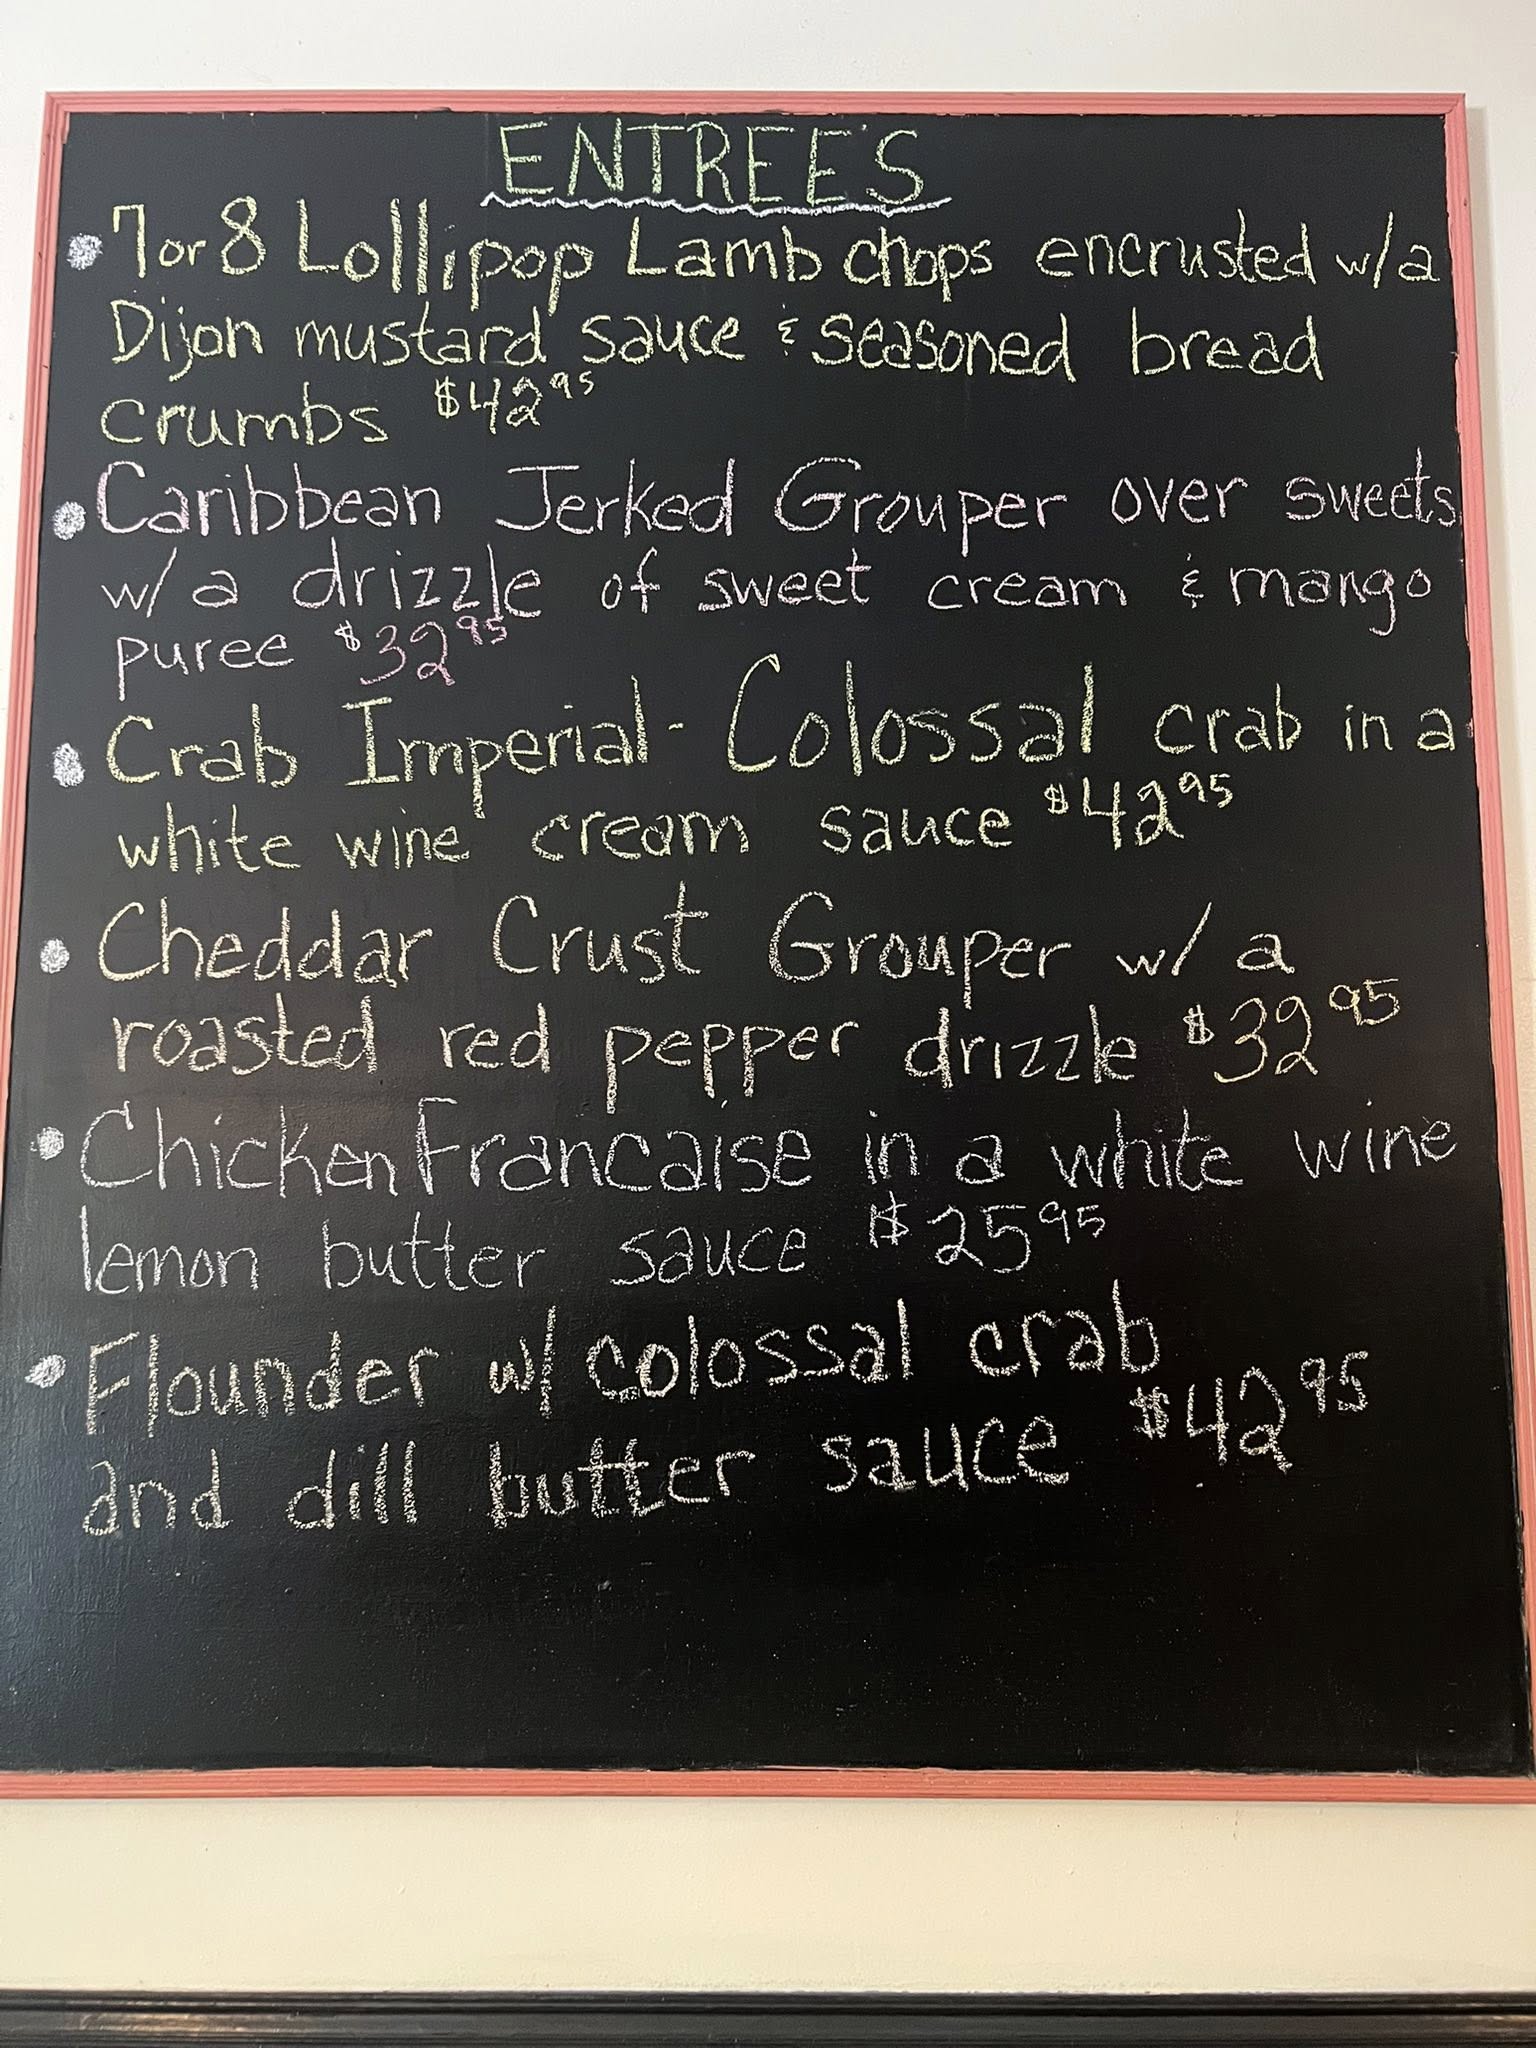 ENTREE'S
7 or 8 Lollipop Lamb chops encrusted w/a
Dijon mustard sauce & seasoned bread
crumbs $42.95
Caribbean Jerked Grouper over sweets
w/a drizzle of sweet cream & mango
puree $32.95
Crab Imperial - Colossal crab in a
white wine cream sauce $42.95
Cheddar Crust Grouper w/ a
roasted red pepper drizzle $32.95
Chicken Francaise in a white wine
lemon butter sauce $25.95
Flounder w/ colossal crab
and dill butter sauce $42.95